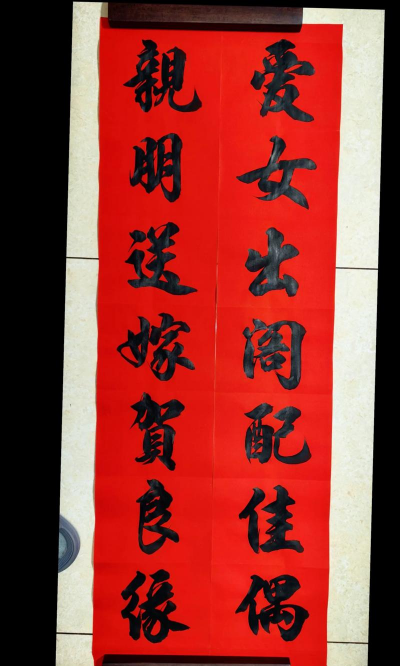 爱女出阁配佳偶
親明送嫁賀良缘